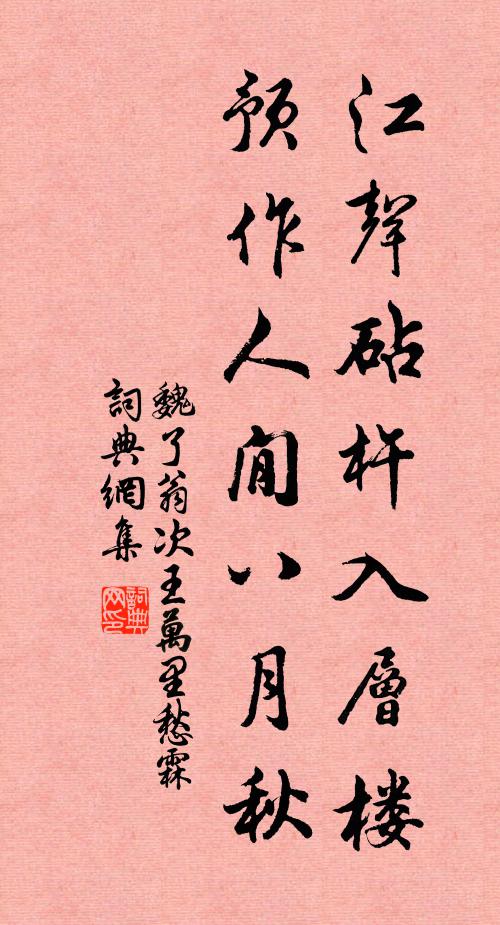 江聲砧杵入層楼
預作人間八月秋
魏了翁次王萬里愁霖
詞典網集
詞典网印